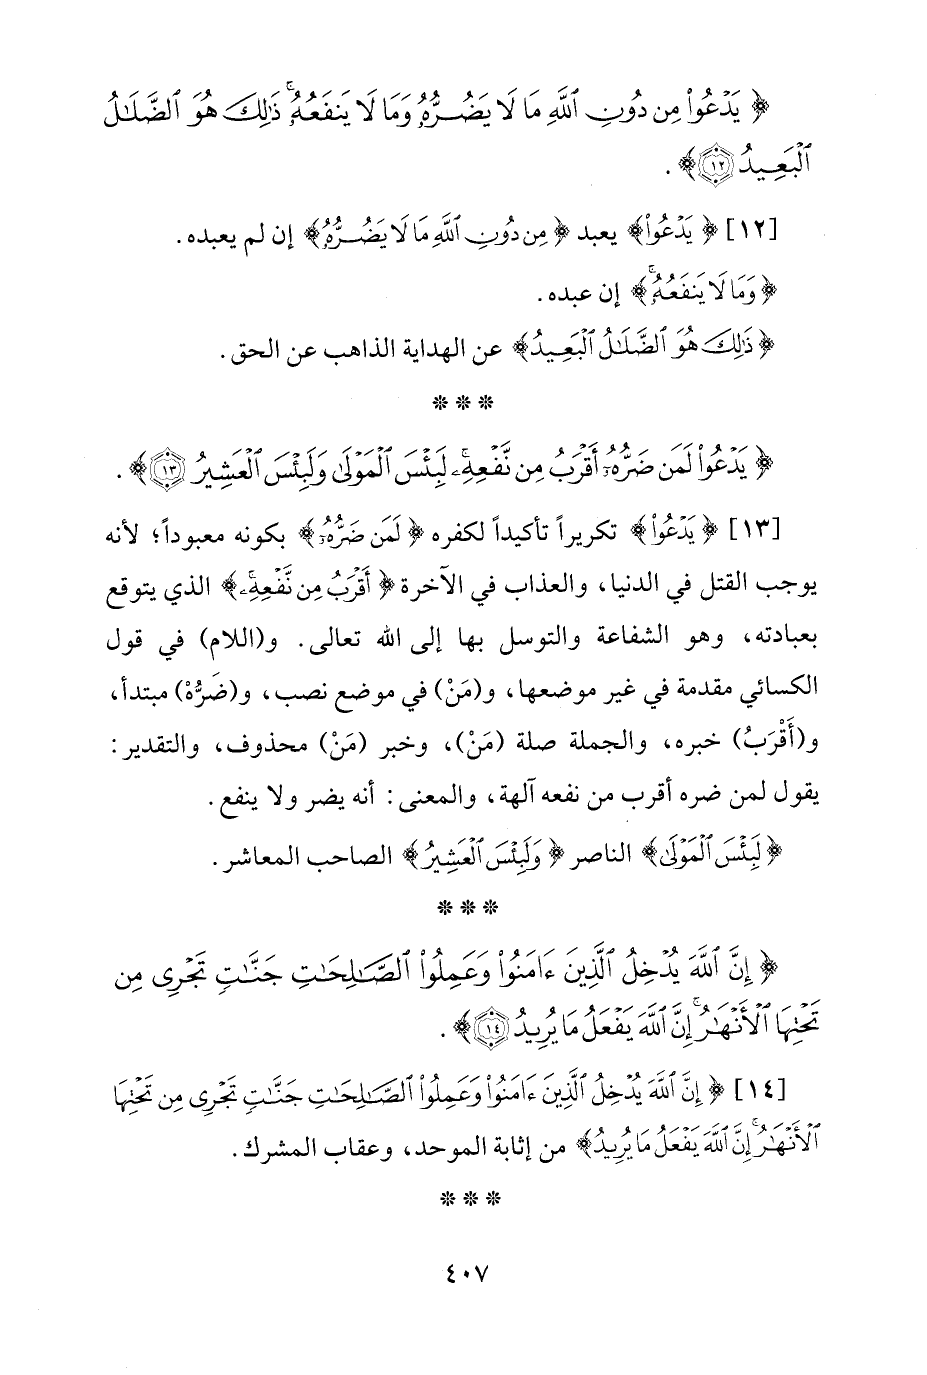 ﴿ يَدْعُوا۟ مِن دُونِ ٱللَّهِ مَا لَا يَضُرُّهُۥ وَمَا لَا يَنفَعُهُۥ ۚ ذَٰلِكَ هُوَ ٱلضَّلَٰلُ
ٱلْبَعِيدُ ﴿١٢﴾ ﴾ .
[١٢] ﴿ يَدْعُوا۟ ﴾ يعبد ﴿ مِن دُونِ ٱللَّهِ مَا لَا يَضُرُّهُۥ ﴾ إن لم يعبده .
﴿ وَمَا لَا يَنفَعُهُۥ ۚ ﴾ إن عبده .
﴿ ذَٰلِكَ هُوَ ٱلضَّلَٰلُ ٱلْبَعِيدُ ﴾ عن الهداية الذاهب عن الحق .
* * *
﴿ يَدْعُوا۟ لَمَن ضَرُّهُۥٓ أَقْرَبُ مِن نَّفْعِهِۦ ۚ لَبِئْسَ ٱلْمَوْلَىٰ وَلَبِئْسَ ٱلْعَشِيرُ ﴿١٣﴾ ﴾ .
[١٣] ﴿ يَدْعُوا۟ ﴾ تكريراً تأكيداً لكفره ﴿ لَمَن ضَرُّهُۥٓ ﴾ بكونه معبوداً؛ لأنه
يوجب القتل في الدنيا، والعذاب في الآخرة ﴿ أَقْرَبُ مِن نَّفْعِهِۦ ۚ ﴾ الذي يتوقع
بعبادته، وهو الشفاعة والتوسل بها إلى الله تعالى. و(اللام) في قول
الكسائي مقدمة في غير موضعها، و(مَنْ) في موضع نصب، و(ضَرُّهُ) مبتدأ،
و(أَقْرَبُ) خبره، والجملة صلة (مَنْ)، وخبر (مَنْ) محذوف، والتقدير:
يقول لمن ضره أقرب من نفعه آلهة، والمعنى: أنه يضر ولا ينفع .
﴿ لَبِئْسَ ٱلْمَوْلَىٰ ﴾ الناصر ﴿ وَلَبِئْسَ ٱلْعَشِيرُ ﴾ الصاحب المعاشر .
* * *
﴿ إِنَّ ٱللَّهَ يُدْخِلُ ٱلَّذِينَ ءَامَنُوا۟ وَعَمِلُوا۟ ٱلصَّٰلِحَٰتِ جَنَّٰتٍ تَجْرِى مِن
تَحْتِهَا ٱلْأَنْهَٰرُ ۚ إِنَّ ٱللَّهَ يَفْعَلُ مَا يُرِيدُ ﴿١٤﴾ ﴾ .
[١٤] ﴿ إِنَّ ٱللَّهَ يُدْخِلُ ٱلَّذِينَ ءَامَنُوا۟ وَعَمِلُوا۟ ٱلصَّٰلِحَٰتِ جَنَّٰتٍ تَجْرِى مِن تَحْتِهَا
ٱلْأَنْهَٰرُ ۚ إِنَّ ٱللَّهَ يَفْعَلُ مَا يُرِيدُ ﴾ من إثابة الموحد، وعقاب المشرك .
* * *
٤٠٧